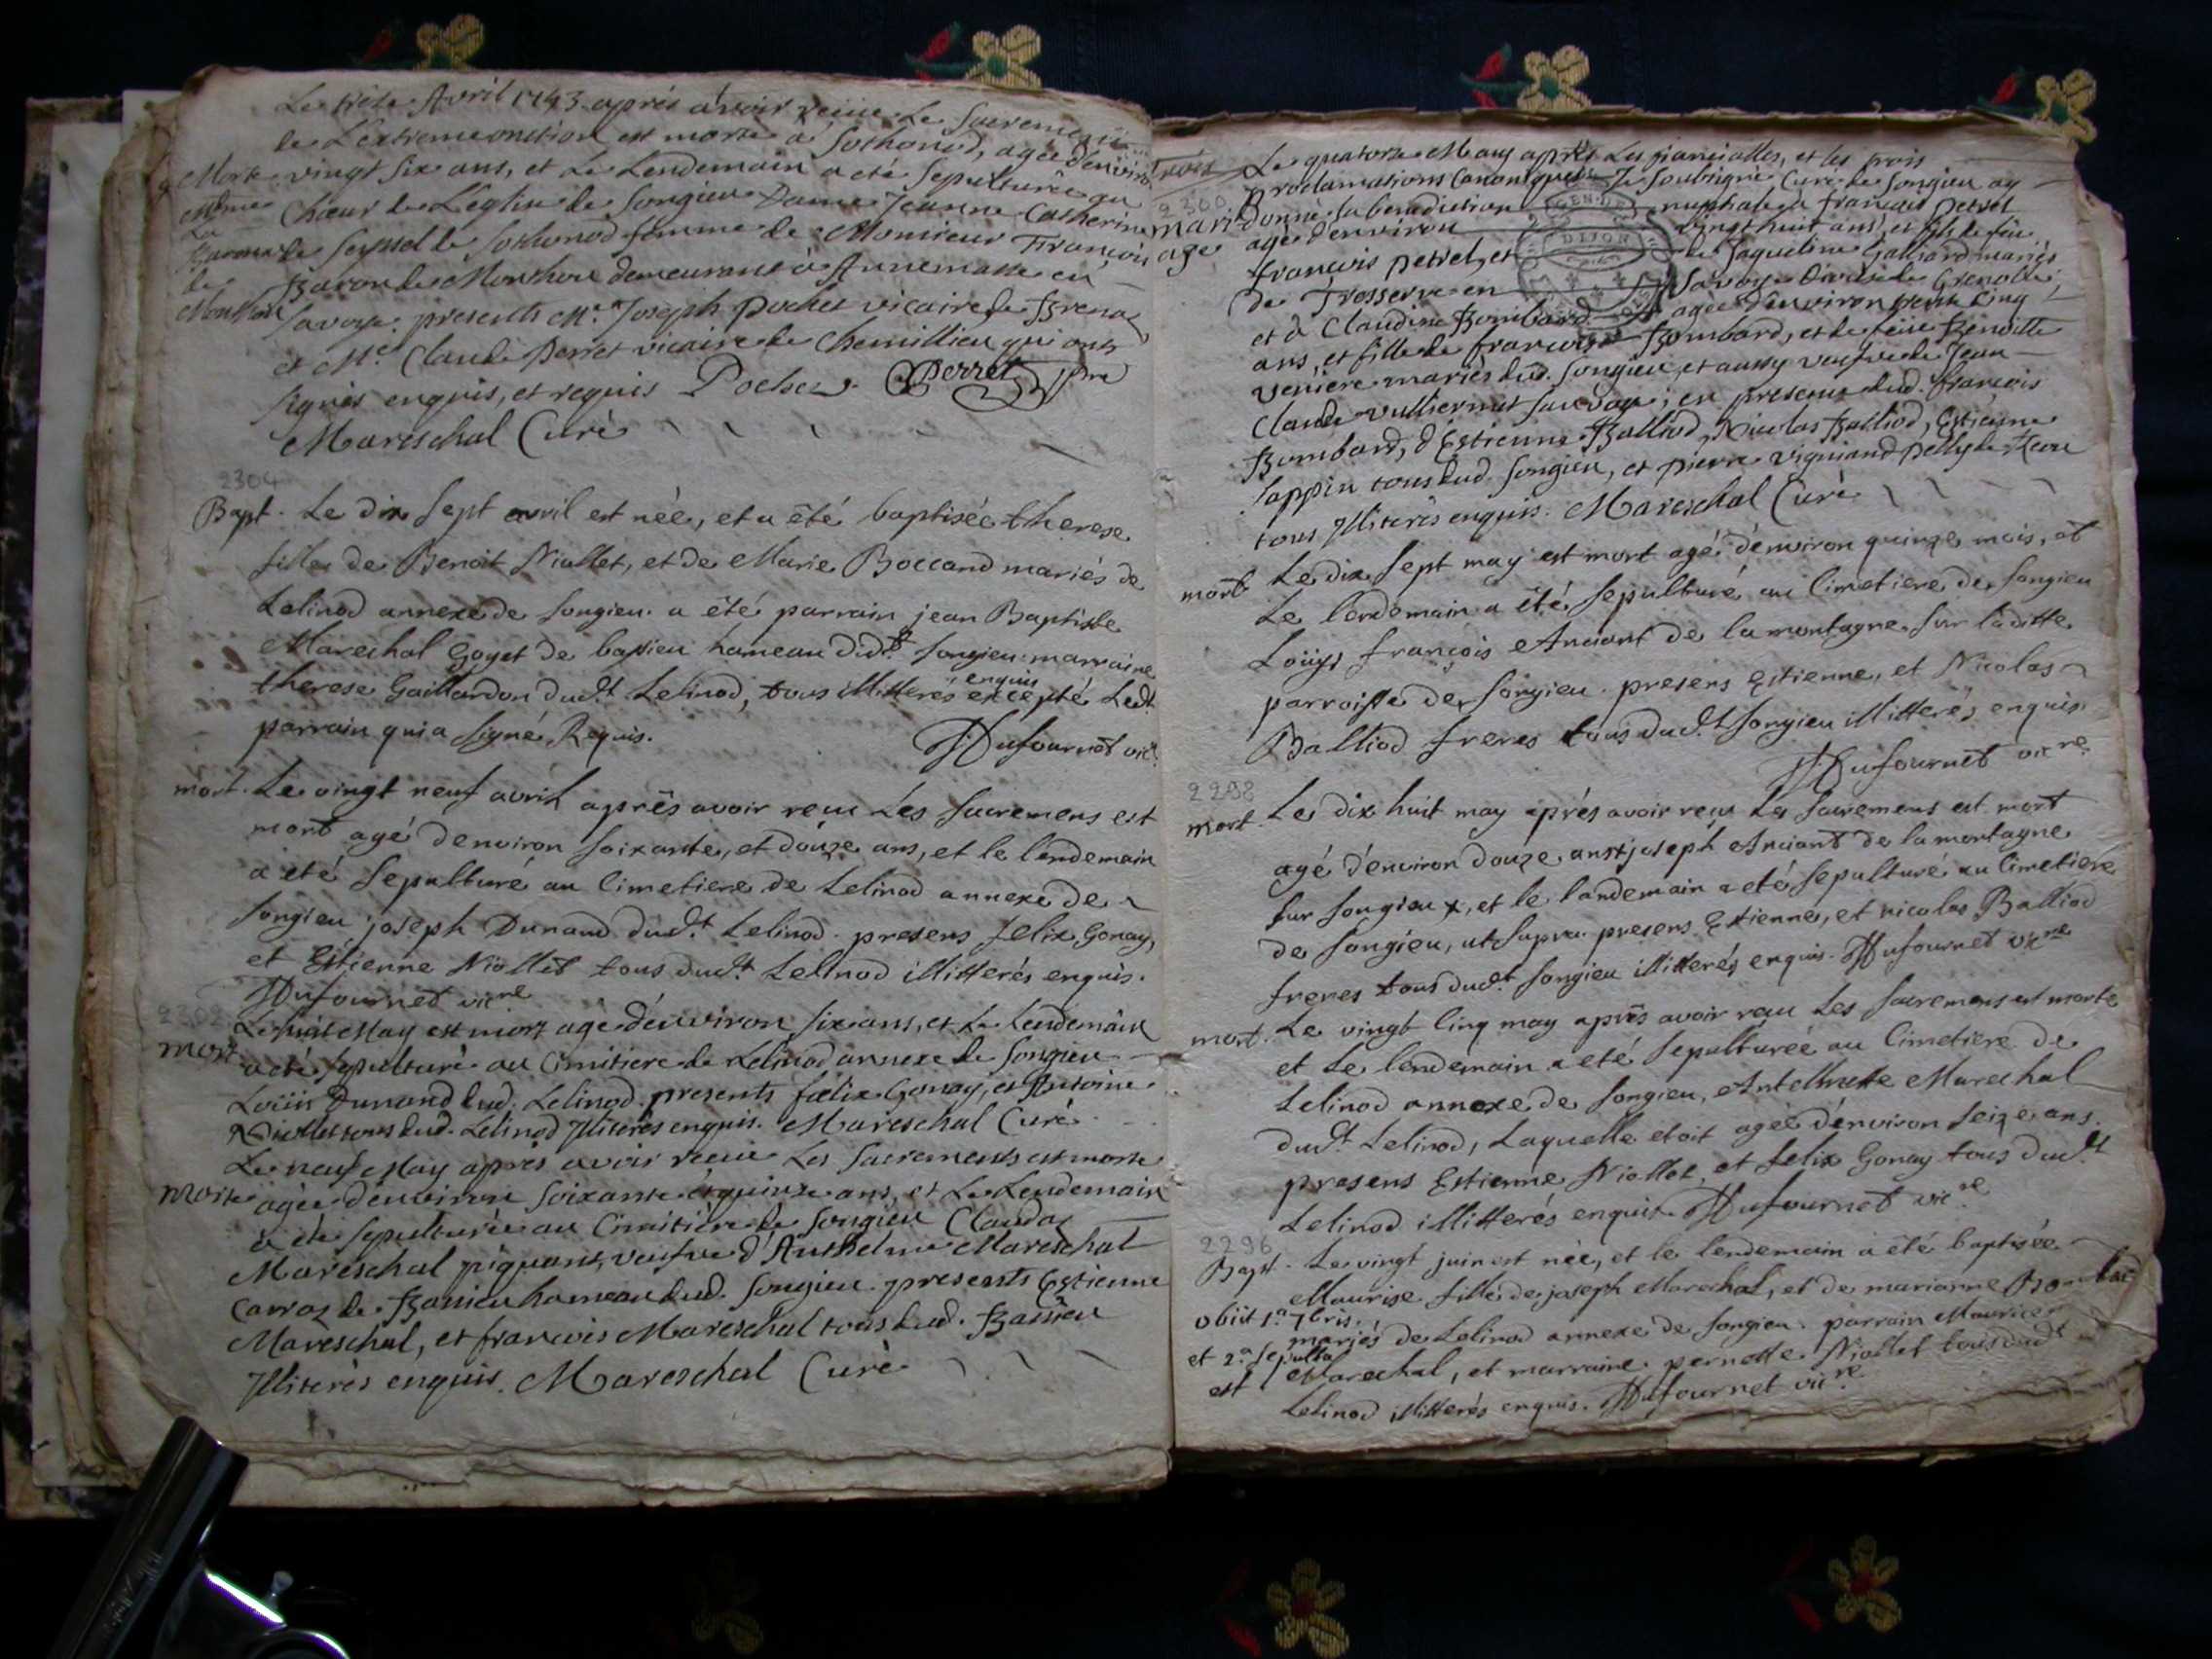 Le Avril 1743 après avoir reçüe Le Sacrement
de L'extremeonction est morte a Sothonod, agée d'environ
Morte vingt six ans, et Le Lendemain a eté sepulturée au
Chœur de L'eglise de Songieu Dame Jeanne Catherine
de Seyssel de Sothonod femme de Monsieur François
Baron de Monthou demeurant à Annemasse en
Savoye. presents Mre Joseph Pochet vicaire de Brenaz
et Mre Claude Perret vicaire de Chemillieu qui ont
signés enquis, et requis Pochet. Perret ptre
Mareschal Curé
2304
Bapt. Le dix sept avril est née, et a été baptisée therese
fille de Benoit Niollet, et de Marie Boccand mariés de
Lelinod annexe de Songieu. a été parrain jean Baptiste
Marechal Goyet de bassieu hameau dudt Songieu marraine
therese Gaillardon dudt Lelinod, tous illitterés enquis excepté Ledt
parrain qui a signé Requis.
Dufournet vic.
mort. Le vingt neuf avril après avoir reçu Les Sacremens est
mort agé d'environ soixante, et douze ans, et le lendemain
a eté sepulturé au Cimetiere de Lelinod annexe de
Songieu joseph Dunand dudt Lelinod. presens felix Gonay,
et Estienne Niollet tous dudt Lelinod illitterés enquis.
Dufournet vicre
2302
Le huit May est mort agé d'environ six ans, et Le Lendemain
mort a eté sepulturé au Cimitiere de Lelinod annexe de Songieu
Loüis Dunand dud. Lelinod. presents fœlix Gonay, et Antoine
Niollet tous dud. Lelinod Illiterés enquis. Mareschal Curé
Le neuf May après avoir reçüe Les Sacrements est morte
morte agée d'environ soixante et quinze ans, et Le Lendemain
a eté sepulturée au Cimitière de Songieu Clauda
Mareschal piquant, veufve d'Anthelme Mareschal
Carraz de Bassieu hameau dud. Songieu. presents Estienne
Mareschal, et francois Mareschal tous dud. Bassieu
Illiterés enquis. Mareschal Curé
Le quatorze May après Les fiancialles, et les trois
proclamations Canoniques Je soubsigné Curé de Songieu ay
2300
mari donné la benediction nuptiale a francois petret
age agé d'environ vingt huit ans, et fils de feu
francois petret, et de Jaqueline Galliard mariés
de Trosserve en Savoye Diocese de Grenoble,
et à Claudine Bombard agée d'environ trente cinq
ans, et fille de francois Bombard, et de feüe Benoitte
veniere mariés dud. Songieu, et aussy veufve de Jean
Claude vulliermet Savoye; en presence dud. francois
Bombard, d'Estienne Balliod, Nicolas Balliod, Estienne
Sappin tous dud. Songieu, et pierre vigniand pelly de
tous Illiterés enquis. Mareschal Curé
DIJON
mort Le dix sept may est mort agé d'environ quinze mois, et
Le lendemain a été sepulturé au Cimetiere de Songieu
Loüys François Anciant de la montagne sur laditte
parroisse de Songieu. presens Estienne, et Nicolas
Balliod freres tous dudt Songieu illitterés enquis.
Dufournet vicre
2298
mort. Le dix huit may après avoir reçu Les Sacremens est mort
agé d'environ douze ans joseph Anciant de la montagne
sur Songieu, et le landemain a eté sepulturé au Cimetiere
de Songieu, ut supra. presens Estienne, et nicolas Balliod
freres tous dudt Songieu illitterés enquis. Dufournet vicre
mort. Le vingt Cinq may après avoir reçu Les Sacremens est morte
et Le lendemain a eté sepulturée au Cimetiere de
Lelinod annexe de Songieu, Anthelmette Marechal
dudt Lelinod, Laquelle etoit agée d'environ seize ans.
presens Estienne Niollet, et felix Gonay tous dudt
Lelinod illitterés enquis. Dufournet vicre
2296
Bapt. Le vingt juin est née, et le lendemain a été baptisée
Maurise fille de joseph Marechal, et de marianne
obiit 1a 7bris
mariés de Lelinod annexe de Songieu. parrain Maurice
et 2a sepulta
est Marechal, et marraine pernette Niollet tous dudt
Lelinod illitterés enquis. Dufournet vicre